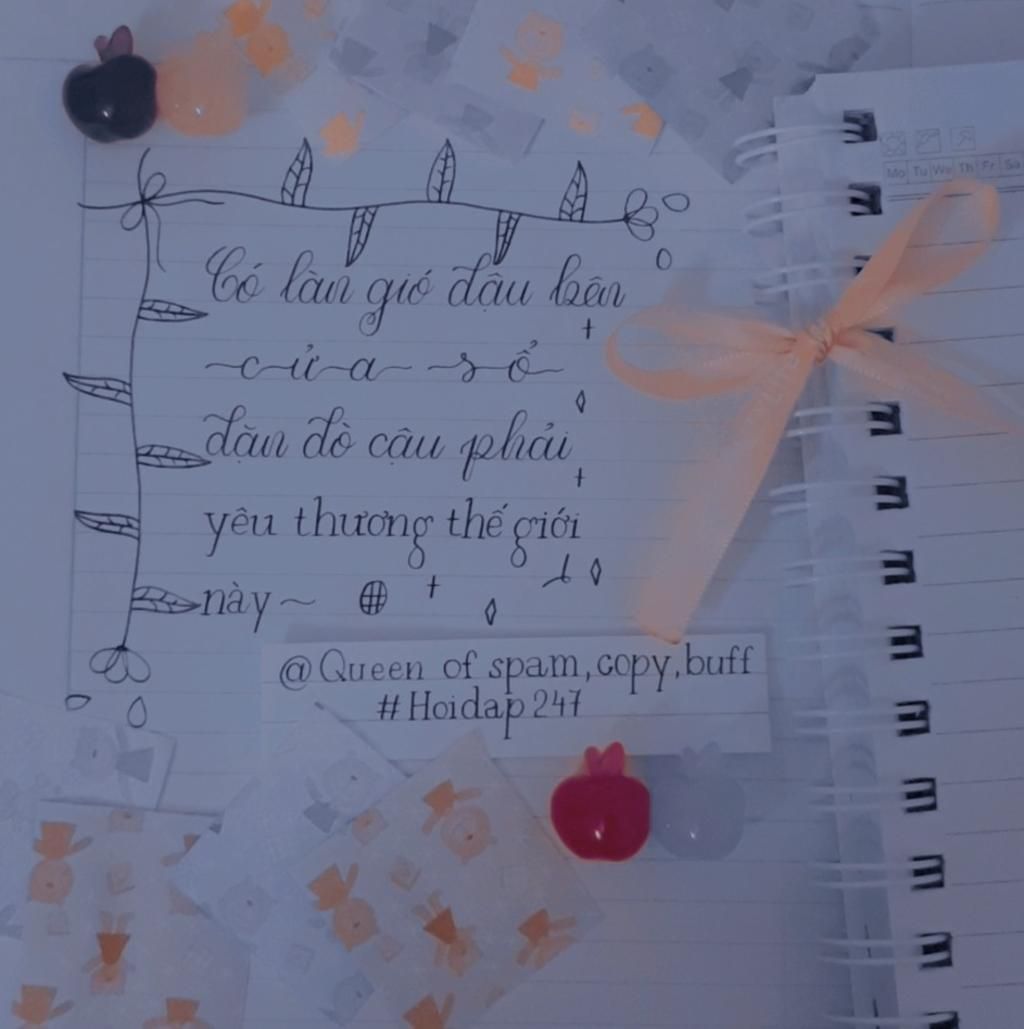 Mo Tu We Th Fr Sa
Có làn gió đậu bên
~c~ử~a~ ~s~ổ~
dặn dò cậu phải
yêu thương thế giới
này ~
@Queen of spam,copy,buff
#Hoidap247